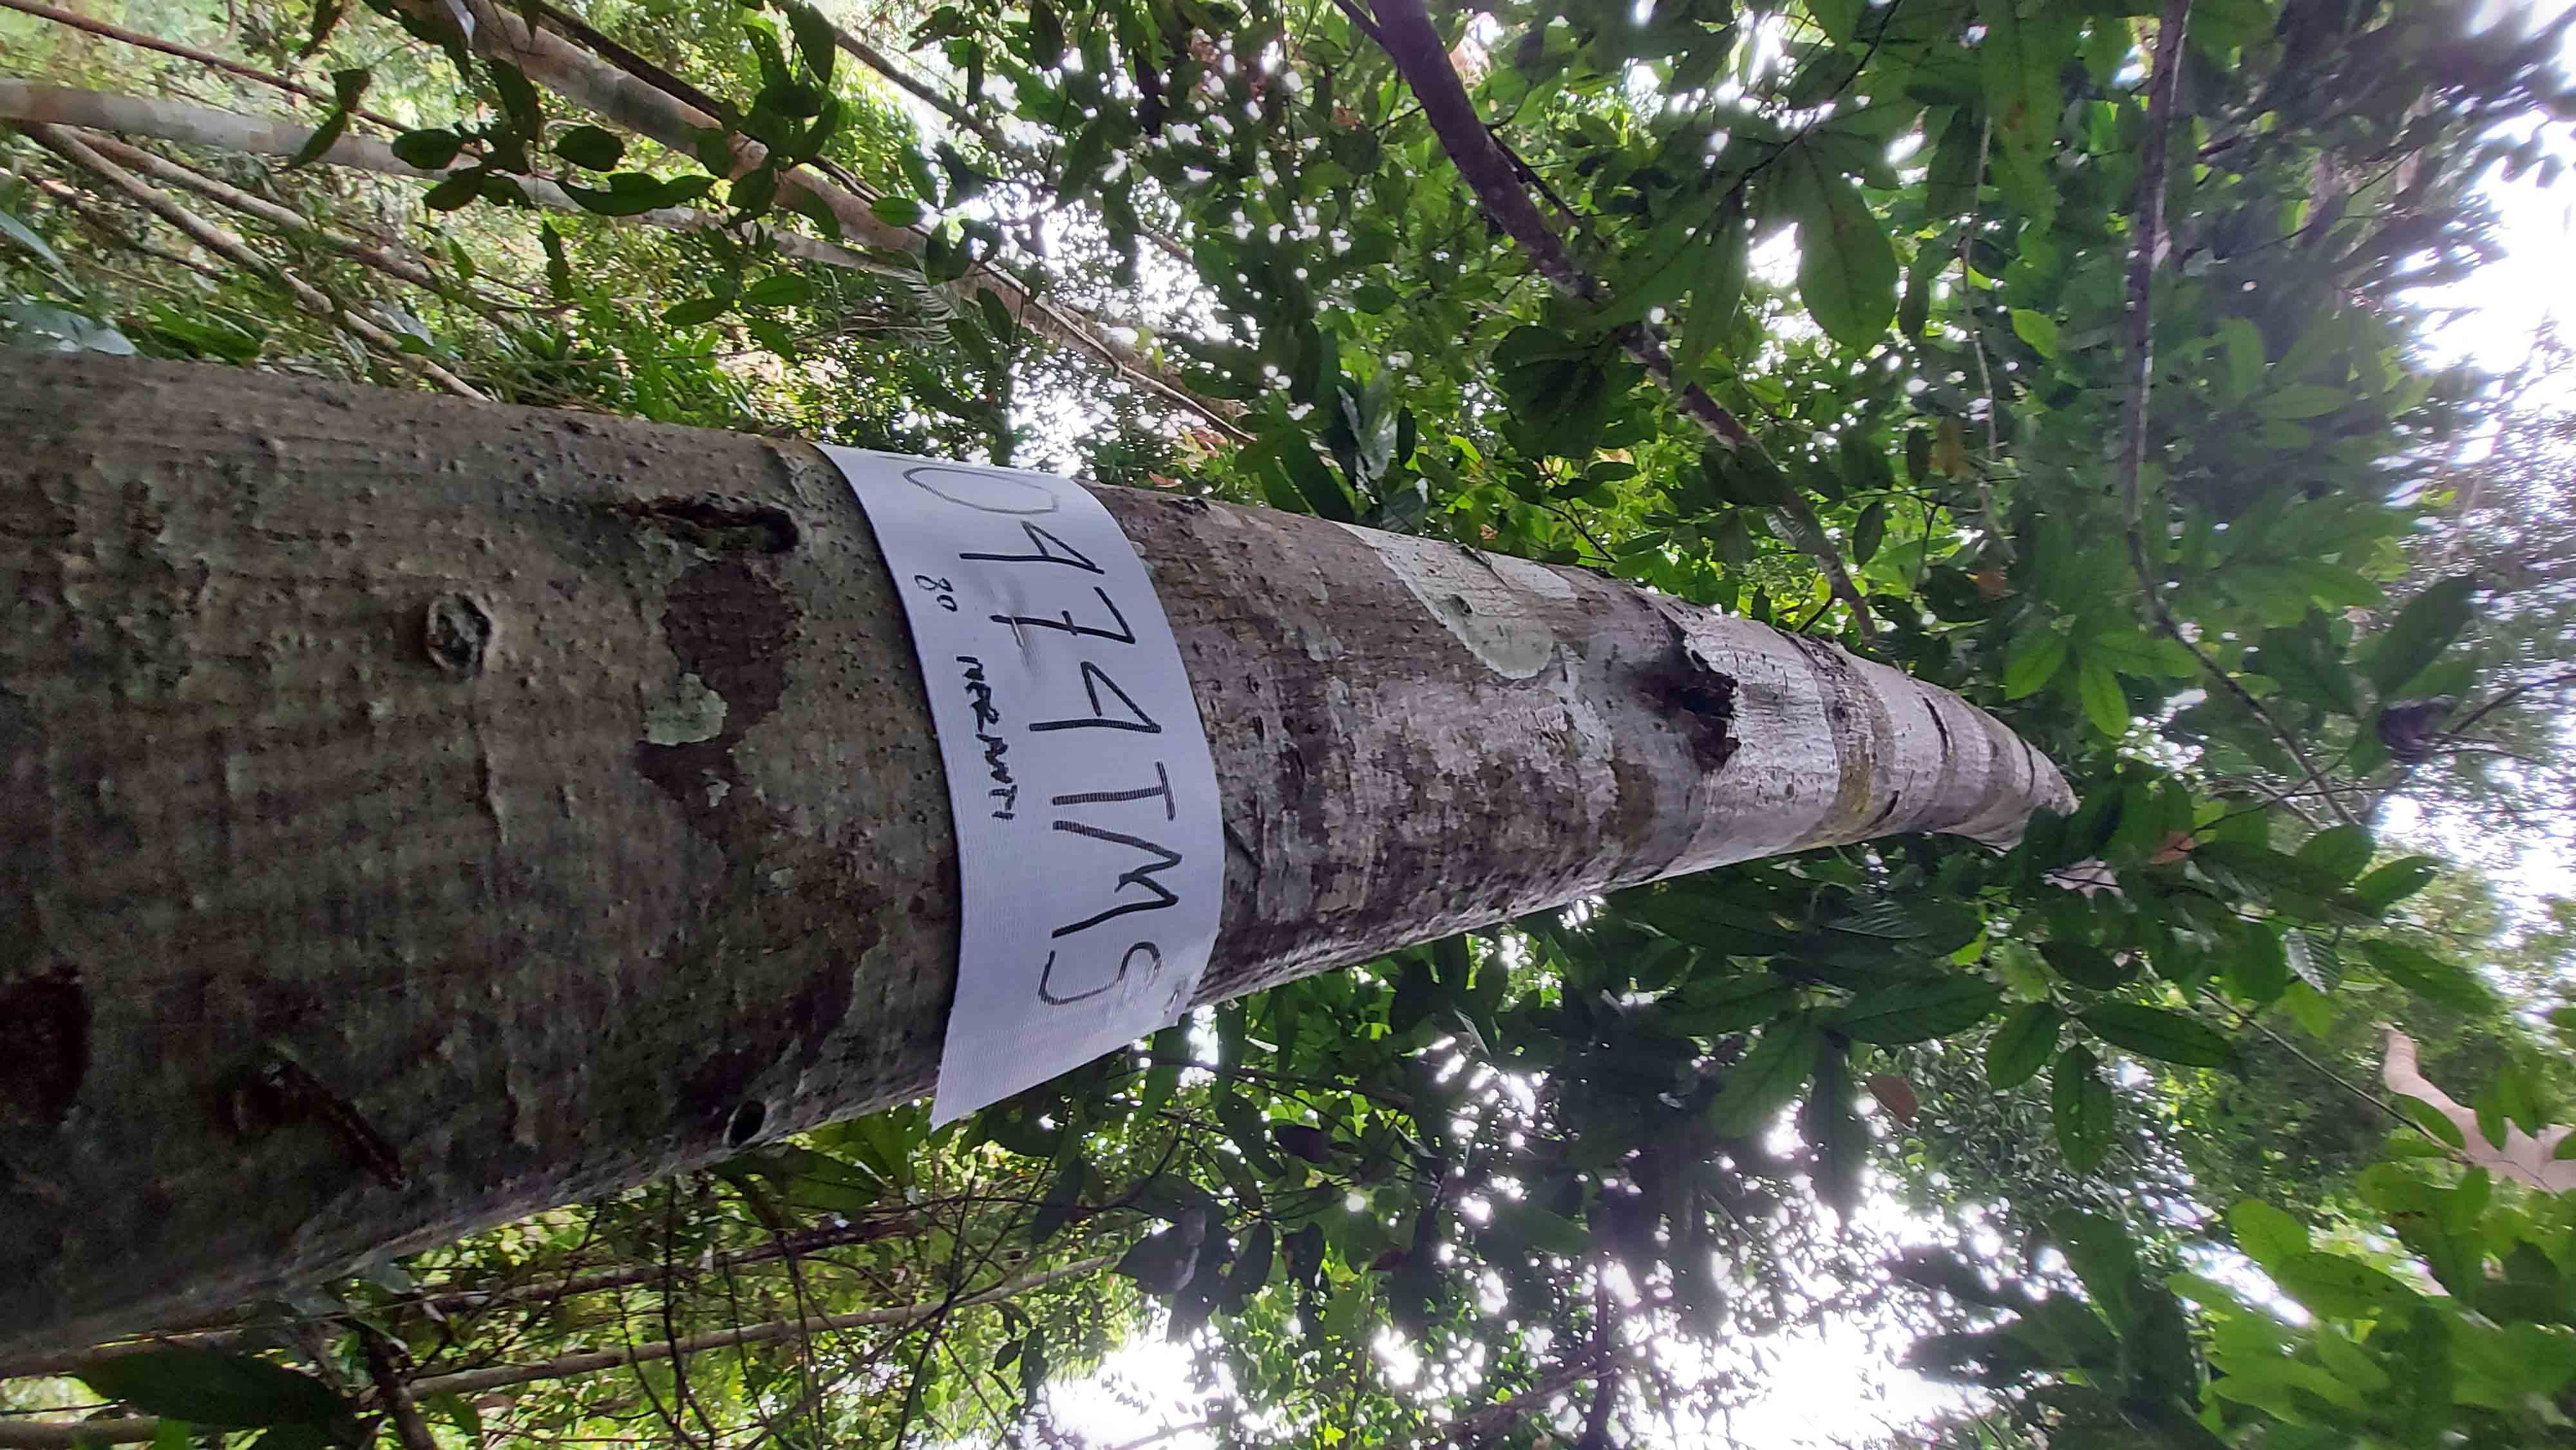 0979TMS
80 MERANTI